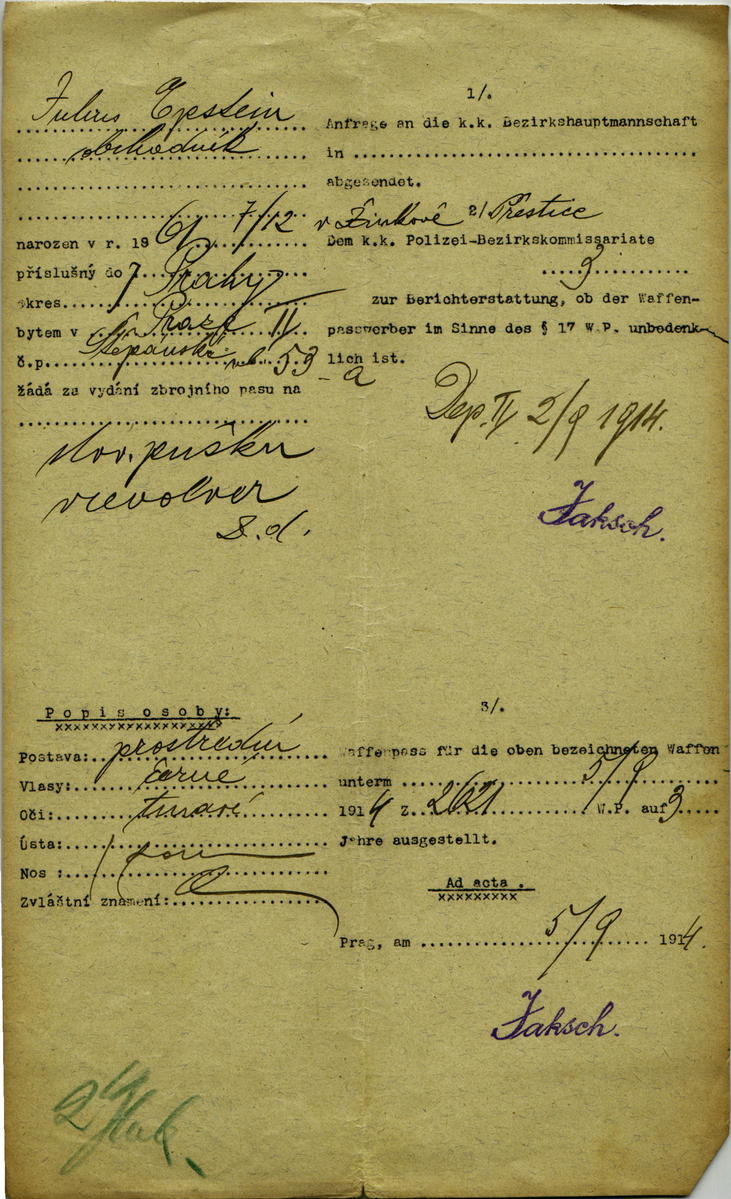 Julius Epstein
obchodník
narozen v r. 1861 7/12 v Žinkově Přestice
příslušný do Prahy
okres
bytem v Praze II
č.p. Štěpánská 53
a
žádá za vydání zbrojního pasu na
lov. pušku
revolver
Popis osoby:
xxxxxxxxxxxxxxxxx
Postava: prostřední
Vlasy: černé
Oči: tmavé
Ústa:
Nos :
Zvláštní znamení:
1/.
Anfrage an die k.k. Bezirkshauptmannschaft
in
abgesendet.
2/
Dem k.k. Polizei-Bezirkskommissariate
3
zur Berichterstattung, ob der Waffen-
passwerber im Sinne des § 17 W.P. unbedenk-
lich ist.
Dep. II 2/9 1914.
Jaksch.
3/.
Waffenpass für die oben bezeichneten Waffen
unterm 5/9
1914 Z. 2621 W.P. auf 3
Jahre ausgestellt.
Ad acta .
xxxxxxxxx
Prag, am 5/9 1914.
Jaksch.